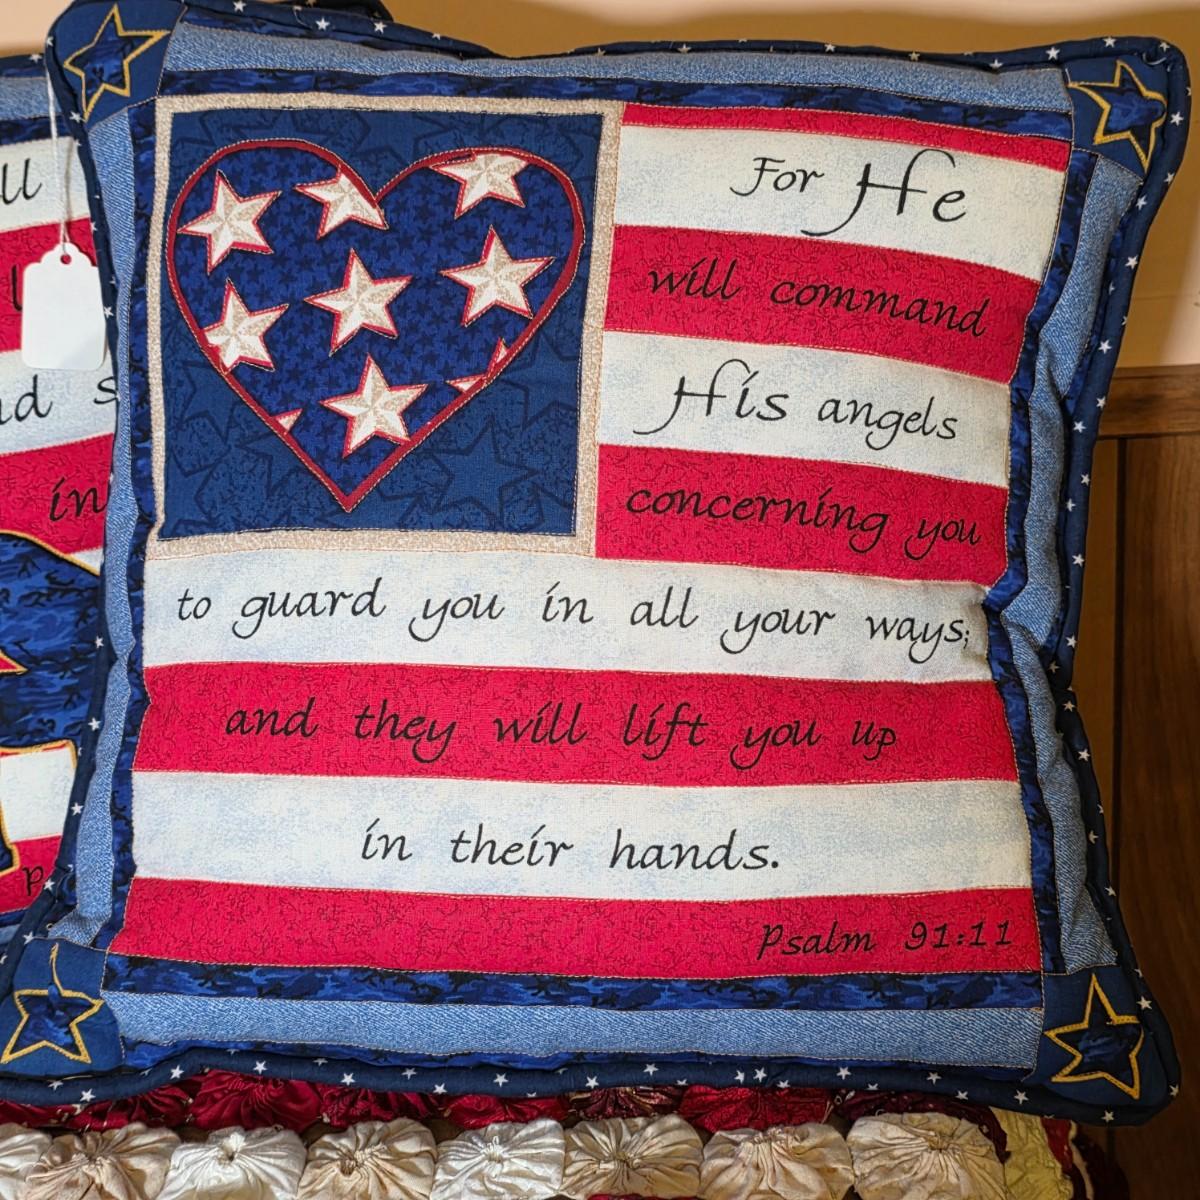 For He
will command
His angels
concerning you
to guard you in all your ways;
and they will lift you up
in their hands.
Psalm 91:11
in